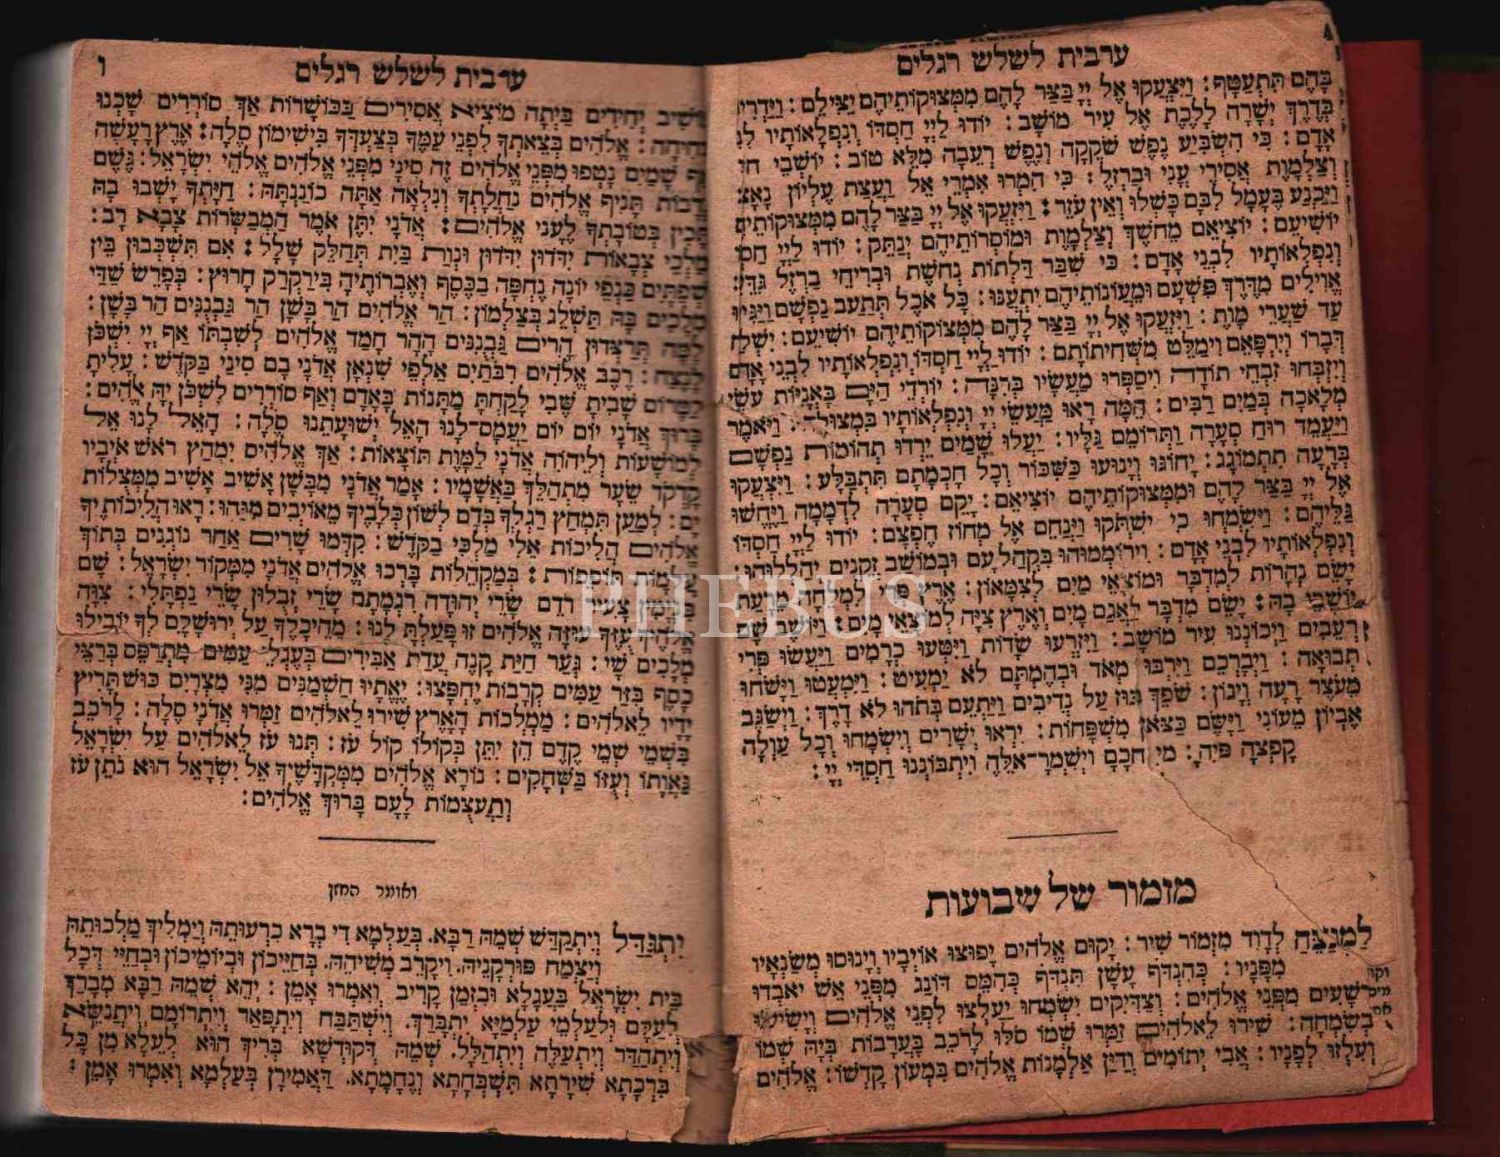 ערבית לשלש רגלים
בהם תתעטף: ויצעקו אל יי בצר להם ממצוקותיהם יצילם:
בדרך ישרה ללכת אל עיר מושב: יודו ליי חסדו ונפלאותיו
אדם: כי השביע נפש שקקה ונפש רעבה מלא טוב: יושבי
וצלמות אסירי עני וברזל: כי המרו אמרי אל ועצת עליון נאצו
ויכנע בעמל לבם כשלו ואין עזר: ויזעקו אל יי בצר להם ממצוקותיהם
יושיעם: יוציאם מחשך וצלמות ומוסרותיהם ינתק: יודו ליי חסדו
ונפלאותיו לבני אדם: כי שבר דלתות נחשת ובריחי ברזל גדע:
אוילים מדרך פשעם ומעונותיהם יתענו: כל אכל תתעב נפשם ויגיעו
עד שערי מות: ויזעקו אל יי בצר להם ממצוקותיהם יושיעם: ישלח
דברו וירפאם וימלט משחיתותם: יודו ליי חסדו ונפלאותיו לבני אדם
ויזבחו זבחי תודה ויספרו מעשיו ברנה: יורדי הים באניות עשי
מלאכה במים רבים: המה ראו מעשי יי ונפלאותיו במצולה: ויאמר
ויעמד רוח סערה ותרומם גליו: יעלו שמים ירדו תהומות נפשם
ברעה תתמוגג: יחוגו וינועו כשכור וכל חכמתם תתבלע: ויצעקו
אל יי בצר להם וממצוקותיהם יוציאם: יקם סערה לדממה ויחשו
גליהם: וישמחו כי ישתקו וינחם אל מחוז חפצם: יודו ליי חסדו
ונפלאותיו לבני אדם: וירוממוהו בקהל עם ובמושב זקנים יהללוהו:
ישם נהרות למדבר ומוצאי מים לצמאון: ארץ פרי למלחה מרעת
יושבי בה: ישם מדבר לאגם מים וארץ ציה למוצאי מים: ויושב שם
רעבים ויכוננו עיר מושב: ויזרעו שדות ויטעו כרמים ויעשו פרי
תבואה: ויברכם וירבו מאד ובהמתם לא ימעיט: וימעטו וישחו
מעצר רעה ויגון: שפך בוז על נדיבים ויתעם בתהו לא דרך: וישגב
אביון מעוני וישם כצאן משפחות: יראו ישרים וישמחו וכל עולה
קפצה פיה: מי חכם וישמר־אלה ויתבוננו חסדי יי:
מזמור של שבועות
למנצח לדוד מזמור שיר: יקום אלהים יפוצו אויביו וינוסו משנאיו
מפניו: כהנדף עשן תנדף כהמס דונג מפני אש יאבדו
רשעים מפני אלהים: וצדיקים ישמחו יעלצו לפני אלהים וישישו
בשמחה: שירו לאלהים זמרו שמו סלו לרכב בערבות ביה שמו
ועלזו לפניו: אבי יתומים ודין אלמנות אלהים במעון קדשו: אלהים
ו ערבית לשלש רגלים
מושיב יחידים ביתה מוציא אסירים בכושרות אך סוררים שכנו
צחיחה: אלהים בצאתך לפני עמך בצעדך בישימון סלה: ארץ רעשה
אף שמים נטפו מפני אלהים זה סיני מפני אלהים אלהי ישראל: גשם
נדבות תניף אלהים נחלתך ונלאה אתה כוננתה: חיתך ישבו בה
תכין בטובתך לעני אלהים: אדני יתן אמר המבשרות צבא רב:
מלכי צבאות ידדון ידדון ונות בית תחלק שלל: אם תשכבון בין
שפתים כנפי יונה נחפה בכסף ואברותיה בירקרק חרוץ: בפרש שדי
מלכים בה תשלג בצלמון: הר אלהים הר בשן הר גבננים הר בשן:
למה תרצדון הרים גבננים ההר חמד אלהים לשבתו אף יי ישכן
לנצח: רכב אלהים רבתים אלפי שנאן אדני בם סיני בקדש: עלית
למרום שבית שבי לקחת מתנות באדם ואף סוררים לשכן יה אלהים:
ברוך אדני יום יום יעמס־לנו האל ישועתנו סלה: האל לנו אל
למושעות וליהוה אדני למות תוצאות: אך אלהים ימחץ ראש איביו
קדקד שער מתהלך באשמיו: אמר אדני מבשן אשיב אשיב ממצלות
ים: למען תמחץ רגלך בדם לשון כלביך מאויבים מנהו: ראו הליכותיך
אלהים הליכות אלי מלכי בקדש: קדמו שרים אחר נוגנים בתוך
עלמות תופפות: במקהלות ברכו אלהים אדני ממקור ישראל: שם
בנימן צעיר רדם שרי יהודה רגמתם שרי זבלון שרי נפתלי: צוה
אלהיך עזך עוזה אלהים זו פעלת לנו: מהיכלך על ירושלם לך יובילו
מלכים שי: גער חית קנה עדת אבירים בעגלי עמים מתרפס ברצי
כסף בזר עמים קרבות יחפצו: יאתיו חשמנים מני מצרים כוש תריץ
ידיו לאלהים: ממלכות הארץ שירו לאלהים זמרו אדני סלה: לרכב
בשמי שמי קדם הן יתן בקולו קול עז: תנו עז לאלהים על ישראל
גאותו ועזו בשחקים: נורא אלהים ממקדשיך אל ישראל הוא נתן עז
ותעצמות לעם ברוך אלהים:
ואומר החזן
יתגדל ויתקדש שמה רבא. בעלמא די ברא כרעותה וימליך מלכותה
ויצמח פורקניה. ויקרב משיחה. בחייכון וביומיכון ובחיי דכל
בית ישראל בעגלא ובזמן קריב ואמרו אמן: יהא שמה רבא מברך
לעלם ולעלמי עלמיא יתברך. וישתבח ויתפאר ויתרומם ויתנשא
ויתהדר ויתעלה ויתהלל. שמה דקודשא בריך הוא לעלא מן כל
ברכתא שירתא תשבחתא ונחמתא. דאמירן בעלמא ואמרו אמן:
PHEBUS